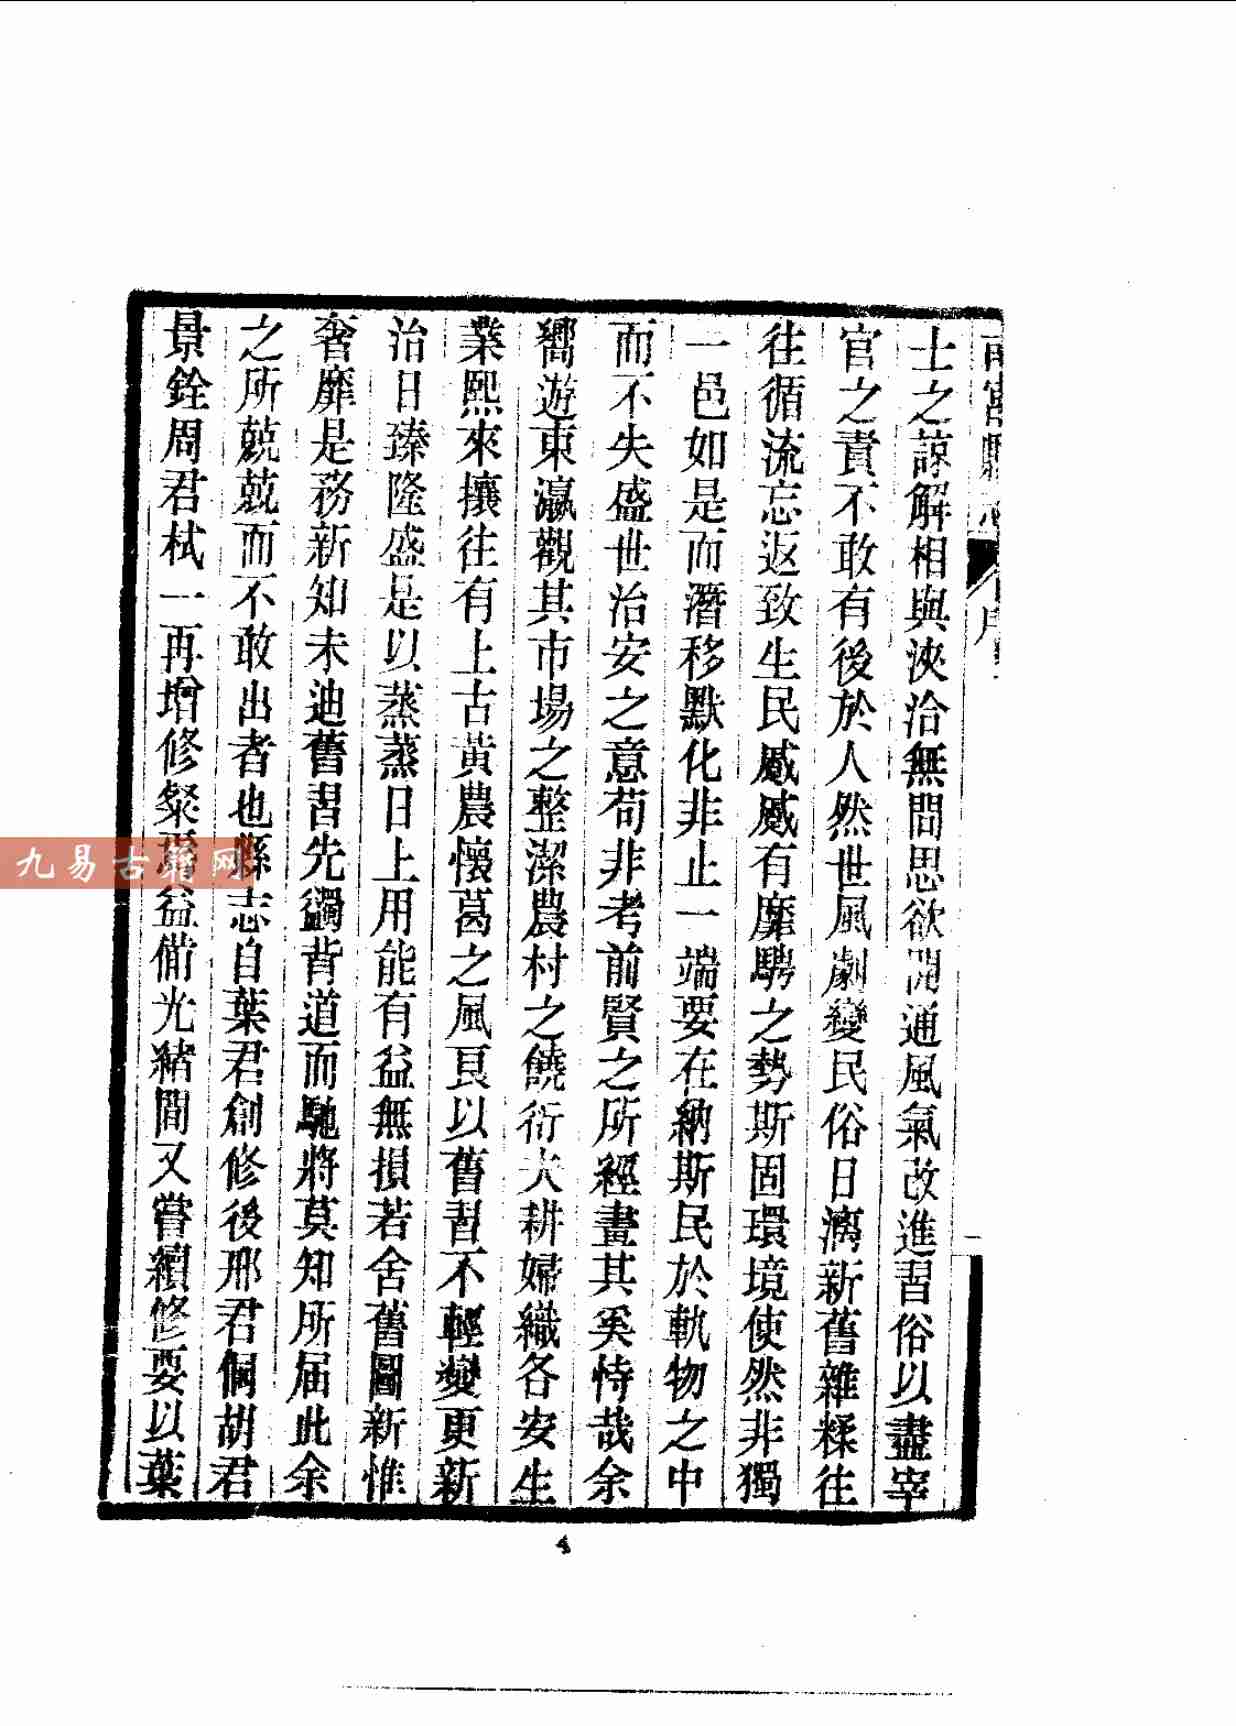 南宮縣志
序
一
士之諒解相與浹洽無間思欲開通風氣改進習俗以盡宰
官之責不敢有後於人然世風劇變民俗日漓新舊雜糅往
往循流忘返致生民慼慼有靡騁之勢斯固環境使然非獨
一邑如是而潛移默化非止一端要在納斯民於軌物之中
而不失盛世治安之意苟非考前賢之所經畫其奚恃哉余
嚮遊東瀛觀其市場之整潔農村之饒衍夫耕婦織各安生
業熙來攘往有上古黃農懷葛之風良以舊習不輕變更新
治日臻隆盛是以蒸蒸日上用能有益無損若舍舊圖新惟
奢靡是務新知未迪舊習先蠲背道而馳將莫知所届此余
之所兢兢而不敢出者也縣志自葉君創修後邢君侗胡君
景銓周君栻一再增修粲焉益備光緒間又嘗續修要以葉
4
九易古籍网